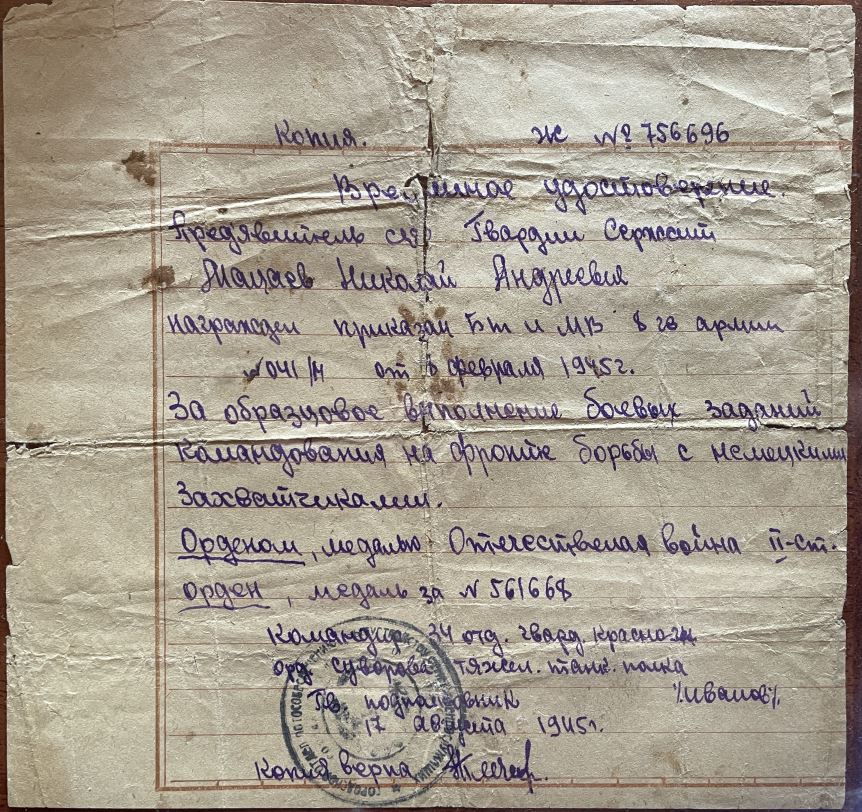 Копия. Ж № 756696
Временное удостоверение.
Предъявитель сего Гвардии Сержант
Николай Андреевич
награжден приказан Бт и МВ 8 гв армии
№ 041/Н от 8 февраля 1945г.
За образцовое выполнение боевых заданий
командования на фронте борьбы с немецкими
захватчиками.
Орденом, медалью Отечественая война II-ст.
орден, медаль за № 561668
Командир 34 отд. гвард. красно-зн
орд. суворова тяжел. танк. полка
Гв. подполковник /Иванов/
17 августа 1945г.
Копия верна